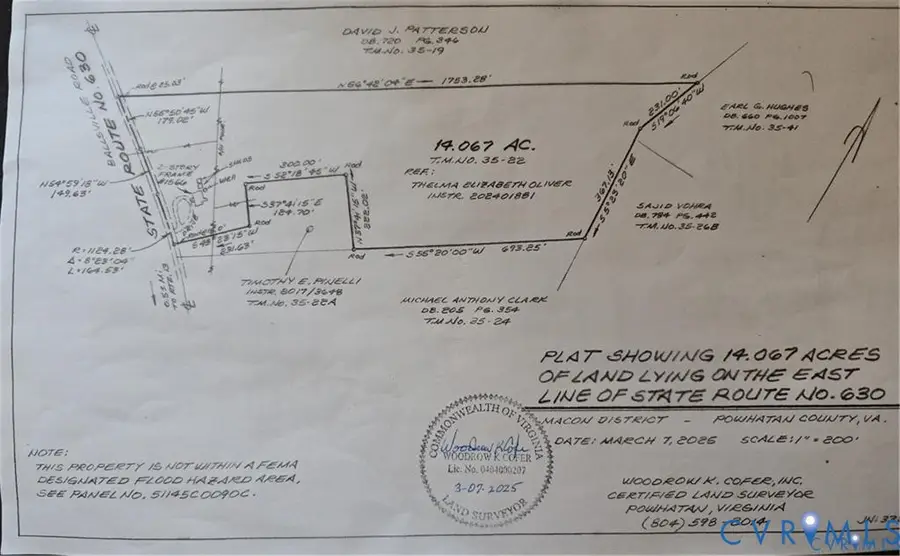 DAVID J. PATTERSON
DB. 720 PG. 346
T.M.No. 35-19
BALLSVILLE ROAD
STATE ROUTE NO. 630
N56°42'04"E 1753.28'
Rod
231.00'
S19°06'40"W
Rod
EARL G. HUGHES
DB. 660 PG. 1007
T.M.No. 35-41
N55°50'45"W
179.02'
2-STORY
FRAME
#1566
SHEDS
Well
DRIVE
N54°59'15"W
149.63'
14.067 AC.
T.M.NO. 35-22
REF:
THELMA ELIZABETH OLIVER
INSTR. 202401881
300.00'
S 52°18'45"W
Rod
Rod
S37°41'15"E
124.70'
Rod
N37°41'15"W
222.02'
367.13'
S5°23'20"E
SAJID VOHRA
DB. 784 PG. 442
T.M.No. 35-26B
R=1124.28'
Δ=8°23'04"
L=164.53'
231.63'
0.53 Mi.
TO RTE. 13
Rod
S55°20'00"W 673.25'
Rod
TIMOTHY E. PINELLI
INSTR. 2017/3648
T.M.No. 35-22A
MICHAEL ANTHONY CLARK
DB. 205 PG. 354
T.M.No. 35-24
PLAT SHOWING 14.067 ACRES
OF LAND LYING ON THE EAST
LINE OF STATE ROUTE NO. 630
MACON DISTRICT - POWHATAN COUNTY, VA.
DATE: MARCH 7, 2025 SCALE: 1" = 200'
NOTE:
THIS PROPERTY IS NOT WITHIN A FEMA
DESIGNATED FLOOD HAZARD AREA,
SEE PANEL NO. 51145C0090C.
COMMONWEALTH OF VIRGINIA
Woodrow K Cofer
WOODROW K. COFER
Lic. No. 0404000207
3-07-2025
LAND SURVEYOR
WOODROW K. COFER, INC.
CERTIFIED LAND SURVEYOR
POWHATAN, VIRGINIA
(804) 598-8014
CVRMLS
CVRMLS